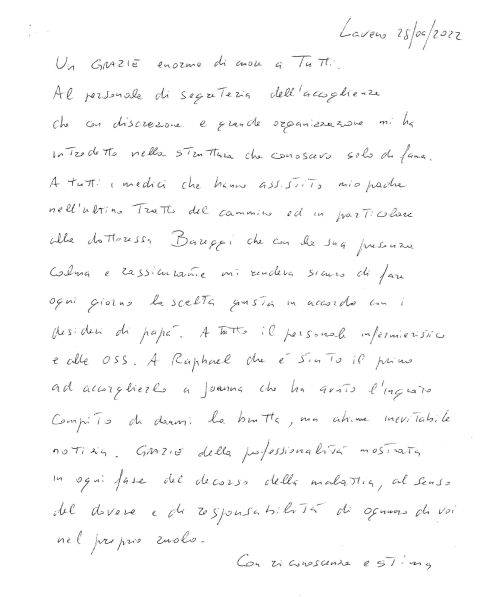 Laveno 28/04/2022
Un GRAZIE enorme di cuore a Tutti.
Al personale di segreteria dell'accoglienza
che con discrezione e grande organizzazione mi ha
introdotto nella struttura che conoscevo solo di fama.
A tutti i medici che hanno assistito mio padre
nell'ultimo Tratto del cammino ed in particolare
alla dottoressa Bareggi che con la sua presenza
calma e rassicurante mi rendeva sicuro di fare
ogni giorno la scelta giusta in accordo con i
desideri di papà. A tutto il personale infermieristico
e alle OSS. A Raphael che è stato il primo
ad accoglierlo a Joanna che ha avuto l'ingrato
compito di darmi la brutta, ma ahime inevitabile
notizia. GRAZIE della professionalità mostrata
in ogni fase del decorso della malattia, al senso
del dovere e di responsabilità di ognuno di voi
nel proprio ruolo.
Con riconoscenza e stima